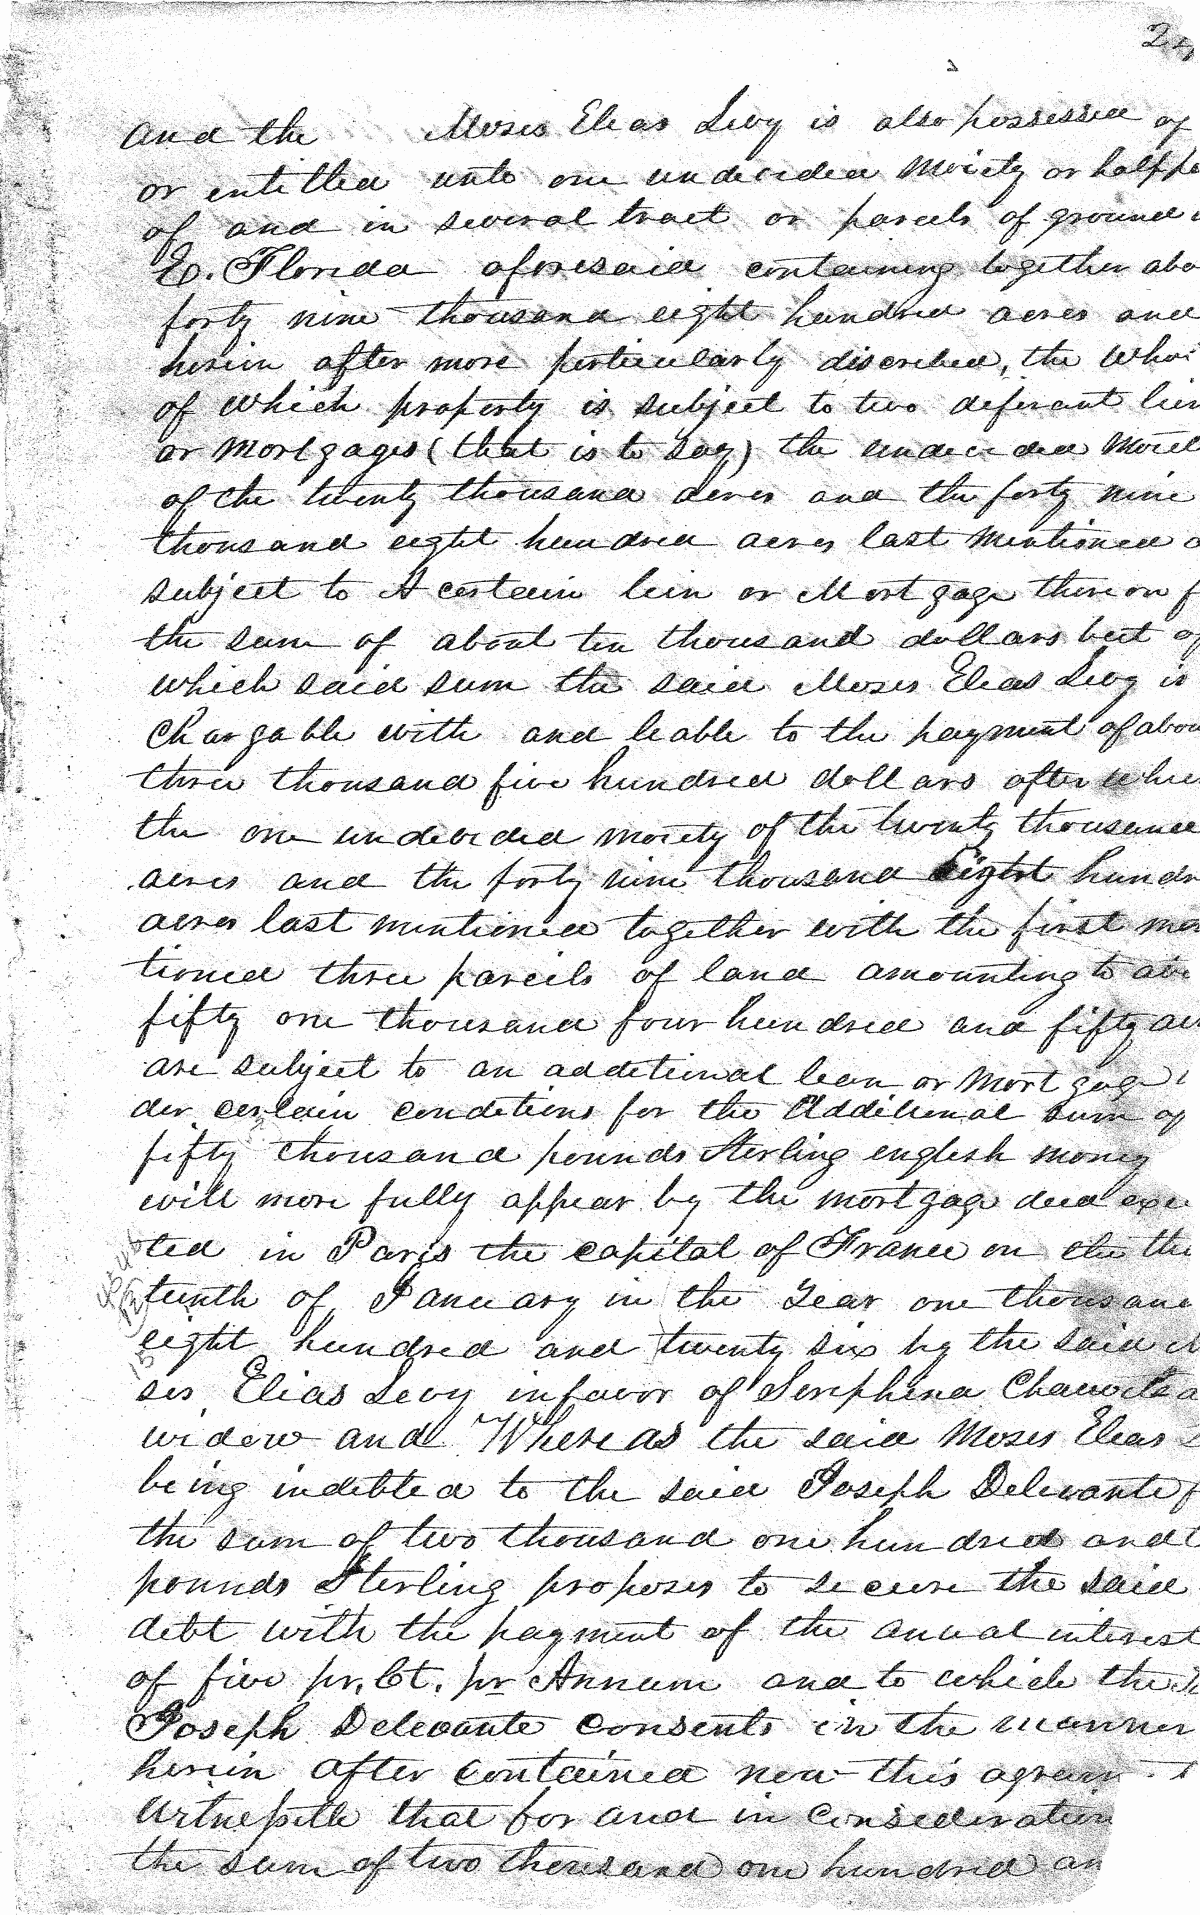 24
and the Moses Elias Levy is also possessed of
or entitled unto one undecided moiety or half pa
of and in several tract or parcels of ground i
E. Florida aforesaid containing together abo
forty nine thousand eight hundred acres and
herein after more perticularly discribed, the whol
of which property is subject to two diferant lien
or mortgages (that is to say) the undecided moiet
of the twenty thousand acres and the forty nine
thousand eight hundred acres last mentioned a
subject to A certain lein or Mortgage thereon f
the sum of about ten thousand dollars but of
which said sum the said Moses Elias Levy is
Chargable with and leable to the payment of abou
three thousand five hundred dollars after whic
the one undecided moiety of the twenty thousand
acres and the forty nine thousand Eight hundr
acres last mentioned together with the first men
tioned three parcels of land amounting to abo
fifty one thousand four hundred and fifty acr
are subject to an additional lean or mortgage
der certain conditions for the Additional sum of
fifty thousand pounds Sterling english money
will more fully appear by the mortgage deed exe
ted in Paris the capital of France on the thi
teenth of January in the Year one thousand
eight hundred and twenty six by the said M
ses Elias Levy in favor of Seriphena Chauvita
widow and Whereas the said Moses Elias L
being indebted to the said Joseph Delevante f
the sum of two thousand one hundred and t
pounds Sterling proposes to secure the said
debt with the payment of the anual interest
of five pr. Ct. pr Annum and to which the
Joseph Delevante consents in the manner
herein after contained now this agreem
Witnesseth that for and in Consideration
the sum of two thousand one hundred an